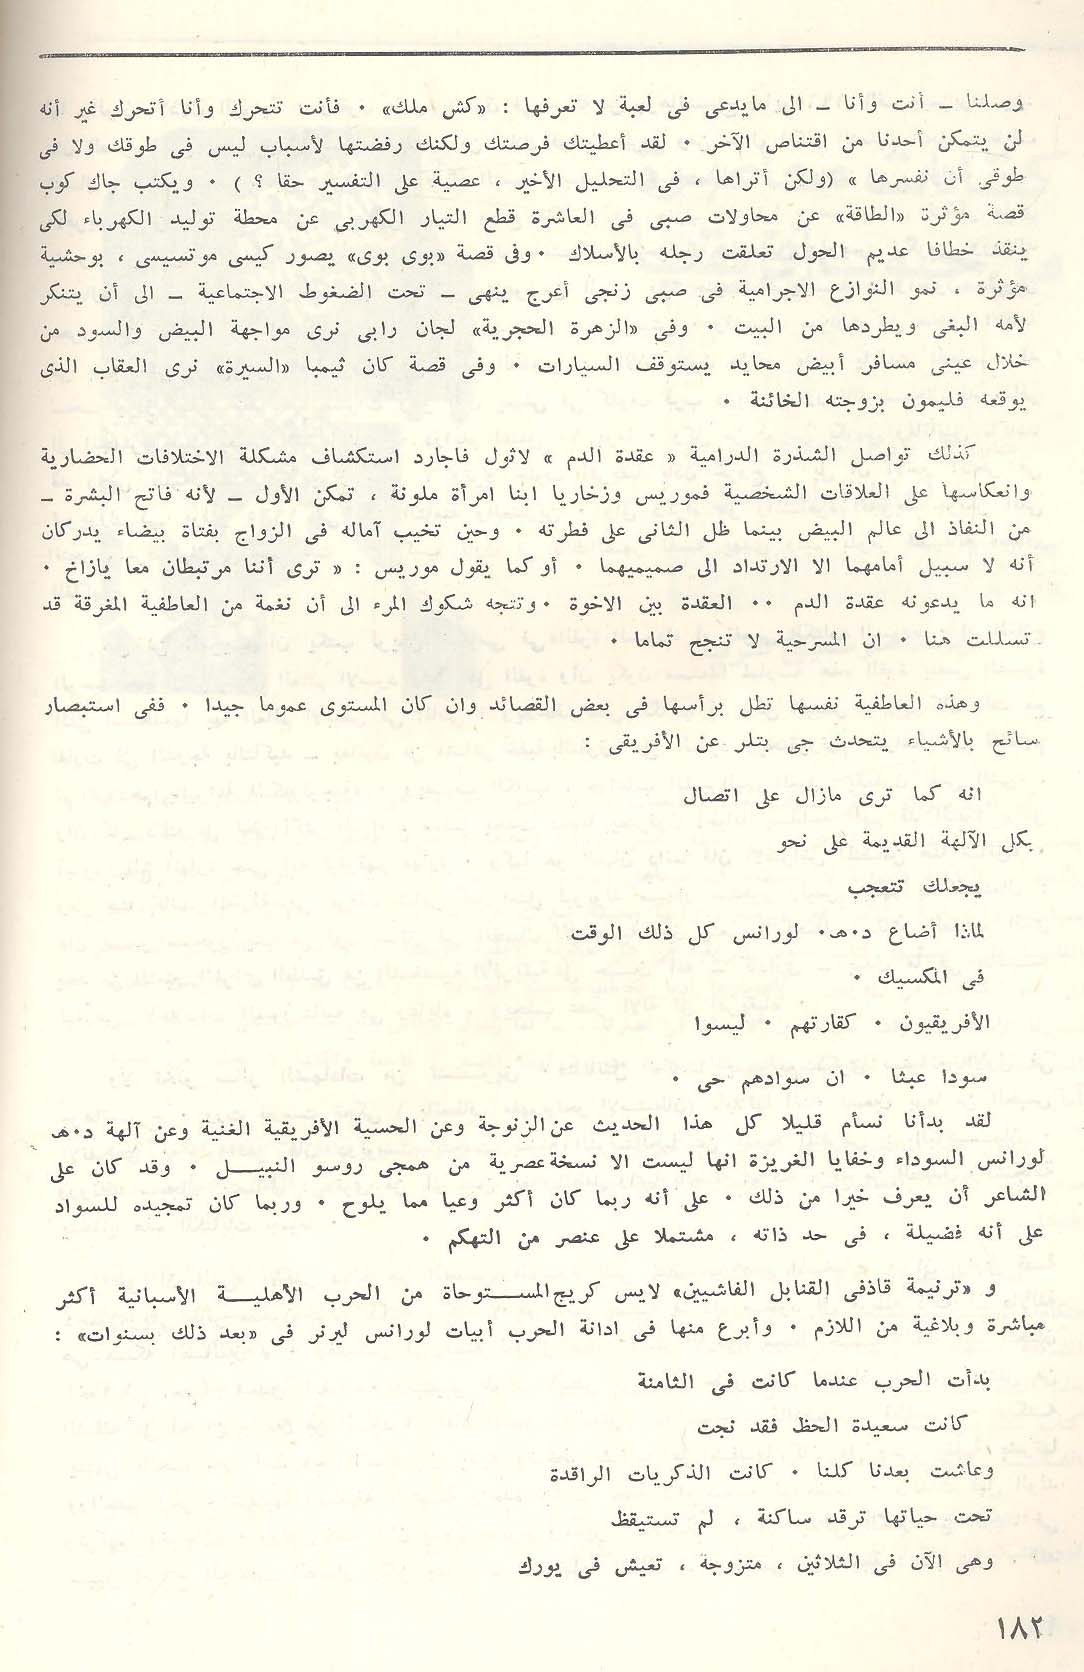 وصلنا ـ أنت وأنا ـ الى مايدعى فى لعبة لا تعرفها : «كش ملك» ٠ فأنت تتحرك وأنا أتحرك غير أنه
لن يتمكن أحدنا من اقتناص الآخر ٠ لقد أعطيتك فرصتك ولكنك رفضتها لأسباب ليس فى طوقك ولا فى
طوقى أن نفسرها » (ولكن أتراها ، فى التحليل الأخير ، عصية على التفسير حقا ؟ ) ٠ ويكتب جاك كوب
قصة مؤثرة «الطاقة» عن محاولات صبى فى العاشرة قطع التيار الكهربى عن محطة توليد الكهرباء لكى
ينقذ خطافا عديم الحول تعلقت رجله بالأسلاك ٠ وفى قصة «بوى بوى» يصور كيسى موتسيسى ، بوحشية
مؤثرة ، نمو النوازع الاجرامية فى صبى زنجى أعرج ينهى ـ تحت الضغوط الاجتماعية ـ الى أن يتنكر
لأمه البغى ويطردها من البيت ٠ وفى «الزهرة الحجرية» لجان رابى نرى مواجهة البيض والسود من
خلال عينى مسافر أبيض محايد يستوقف السيارات ٠ وفى قصة كان ثيمبا «السيرة» نرى العقاب الذى
يوقعه فليمون بزوجته الخائنة ٠
كذلك تواصل الشذرة الدرامية « عقدة الدم » لاثول فاجارد استكشاف مشكلة الاختلافات الحضارية
وانعكاسها على العلاقات الشخصية فموريس وزخاريا ابنا امرأة ملونة ، تمكن الأول ـ لأنه فاتح البشرة ـ
من النفاذ الى عالم البيض بينما ظل الثانى على فطرته ٠ وحين تخيب آماله فى الزواج بفتاة بيضاء يدركان
أنه لا سبيل أمامهما الا الارتداد الى صميميهما ٠ أو كما يقول موريس : « ترى أننا مرتبطان معا يازاخ ٠
انه ما يدعونه عقدة الدم ٠٠ العقدة بين الاخوة ٠ وتتجه شكوك المرء الى أن نغمة من العاطفية المغرقة قد
تسللت هنا ٠ ان المسرحية لا تنجح تماما ٠
وهذه العاطفية نفسها تطل برأسها فى بعض القصائد وان كان المستوى عموما جيدا ٠ ففى استبصار
سائح بالأشياء يتحدث جى بتلر عن الأفريقى :
انه كما ترى مازال على اتصال
بكل الآلهة القديمة على نحو
يجعلك تتعجب
لماذا أضاع د٠هـ٠ لورانس كل ذلك الوقت
فى المكسيك ٠
الأفريقيون ٠ كقارتهم ٠ ليسوا
سودا عبثا ٠ ان سوادهم حى ٠
لقد بدأنا نسأم قليلا كل هذا الحديث عن الزنوجة وعن الحسية الأفريقية الغنية وعن آلهة د٠هـ
لورانس السوداء وخفايا الغريزة انها ليست الا نسخة عصرية من همجى روسو النبيـــل ٠ وقد كان على
الشاعر أن يعرف خيرا من ذلك ٠ على أنه ربما كان أكثر وعيا مما يلوح ٠ وربما كان تمجيده للسواد
على أنه فضيلة ، فى حد ذاته ، مشتملا على عنصر من التهكم ٠
و «ترنيمة قاذفى القنابل الفاشيين» لايس كريج المستــوحاة من الحرب الأهليــة الأسبانية أكثر
مباشرة وبلاغية من اللازم ٠ وأبرع منها فى ادانة الحرب أبيات لورانس ليرنر فى «بعد ذلك بسنوات» :
بدأت الحرب عندما كانت فى الثامنة
كانت سعيدة الحظ فقد نجت
وعاشت بعدنا كلنا ٠ كانت الذكريات الراقدة
تحت حياتها ترقد ساكنة ، لم تستيقظ
وهى الآن فى الثلاثين ، متزوجة ، تعيش فى يورك
١٨٢